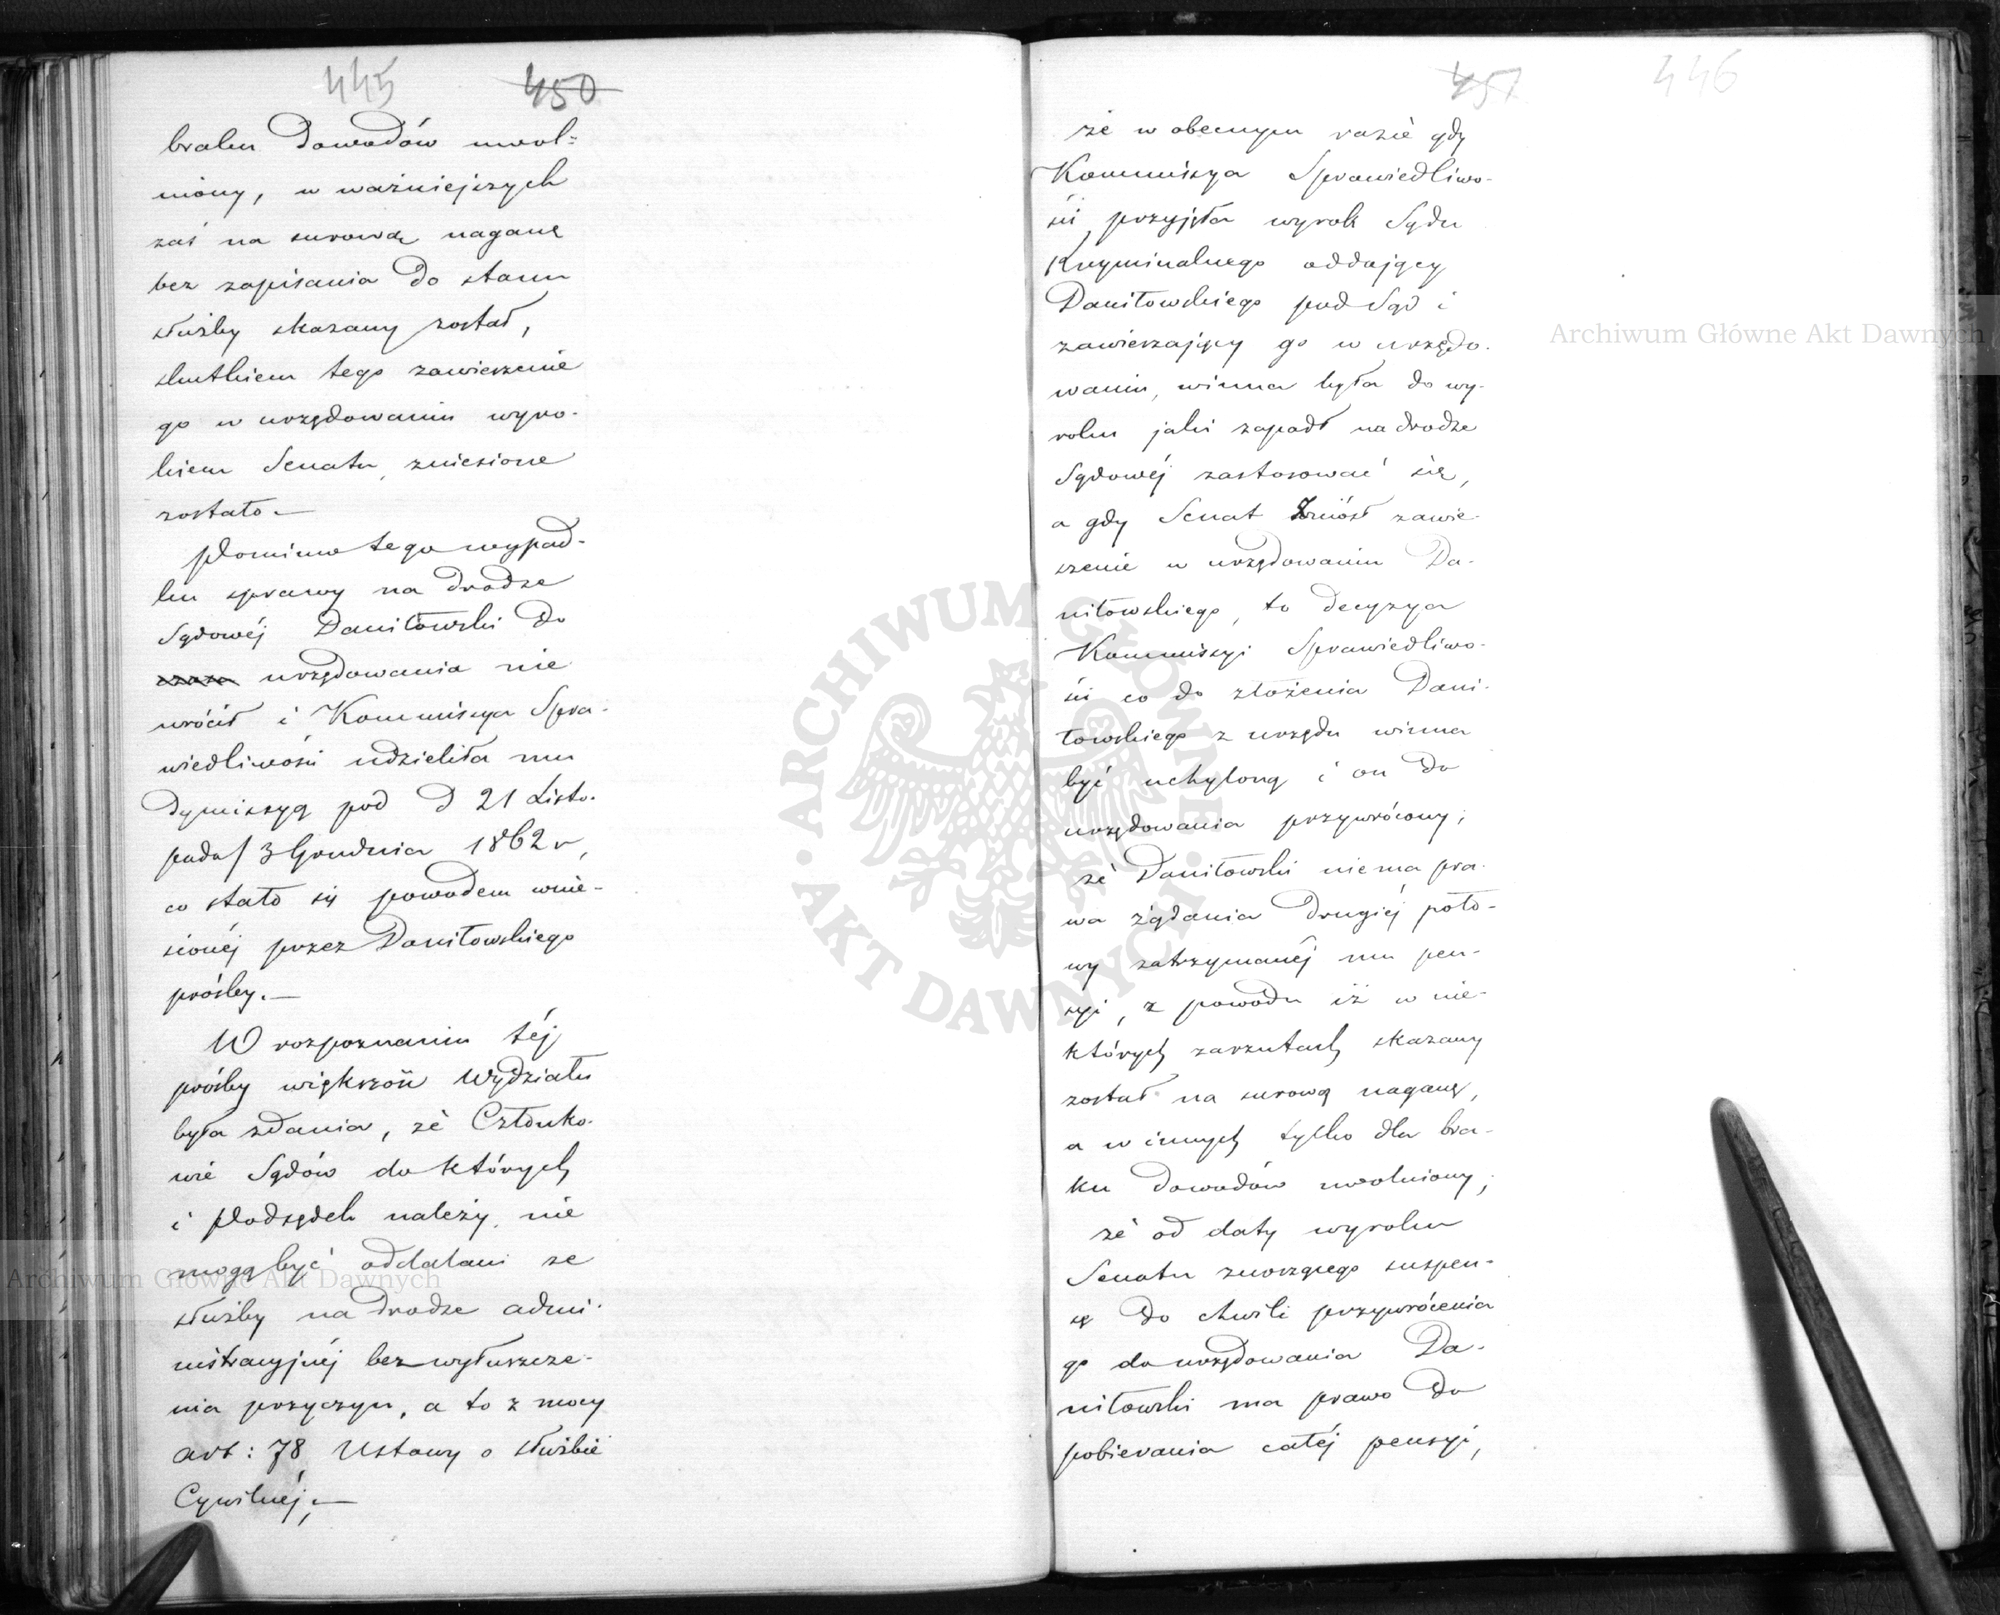 445 450
braku dowodów uwol=
niony, w ważniejszych
zaś na surową naganę
bez zapisania do stanu
służby skazany został,
skutkiem tego zawieszenie
go w urzędowaniu wyro-
kiem Senatu, zniesione
zostało.—
Pomimo tego wypad-
ku sprawy na drodze
Sądowéj Daniłowski do
urzędowania nie
wrócił i Kommissya Spra-
wiedliwości udzieliła mu
dymissyą pod d 21 Listo-
pada/ 3 Grudnia 1862 r,
co stało się powodem wnie-
sionéj przez Daniłowskiego
prośby.—
W rozpoznaniu téj
prośby większość Wydziału
była zdania, że Członko-
wie Sądów do których
i Podsędek należy, nie
mogą być oddalani ze
służby na drodze admi-
nistracyjnéj bez wyłuszcze-
nia przyczyn, a to z mocy
art: 78 Ustawy o służbie
Cywilnéj;—
451 446
że w obecnym razie gdy
Kommissya Sprawiedliwo-
ści, przyjęła wyrok Sądu
Kryminalnego oddający
Daniłowskiego pod Sąd i
zawieszający go w urzędo-
waniu, winna była do wy-
roku jaki zapadł na drodze
Sądowéj zastosować się,
a gdy Senat zniósł zawie-
szenie w urzędowaniu Da-
niłowskiego, to decyzya
Kommissyi Sprawiedliwo-
ści co do złożenia Dani-
łowskiego z urzędu winna
być uchyloną i on do
urzędowania przywrócony;
że Daniłowski niema pra-
wa żądania drugiéj poło-
wy zatrzymanéj mu pen-
syi, z powodu iż w nie-
których zarzutach skazany
został na surową naganę,
a w innych tylko dla bra-
ku dowodów uwolniony;
że od daty wyroku
Senatu znoszącego suspen-
sę do chwili przywrócenia
go do urzędowania Da-
niłowski ma prawo do
pobierania całéj pensyi,
Archiwum Główne Akt Dawnych
Archiwum Główne Akt Dawnych
ARCHIWUM GŁÓWNE · AKT DAWNYCH ·